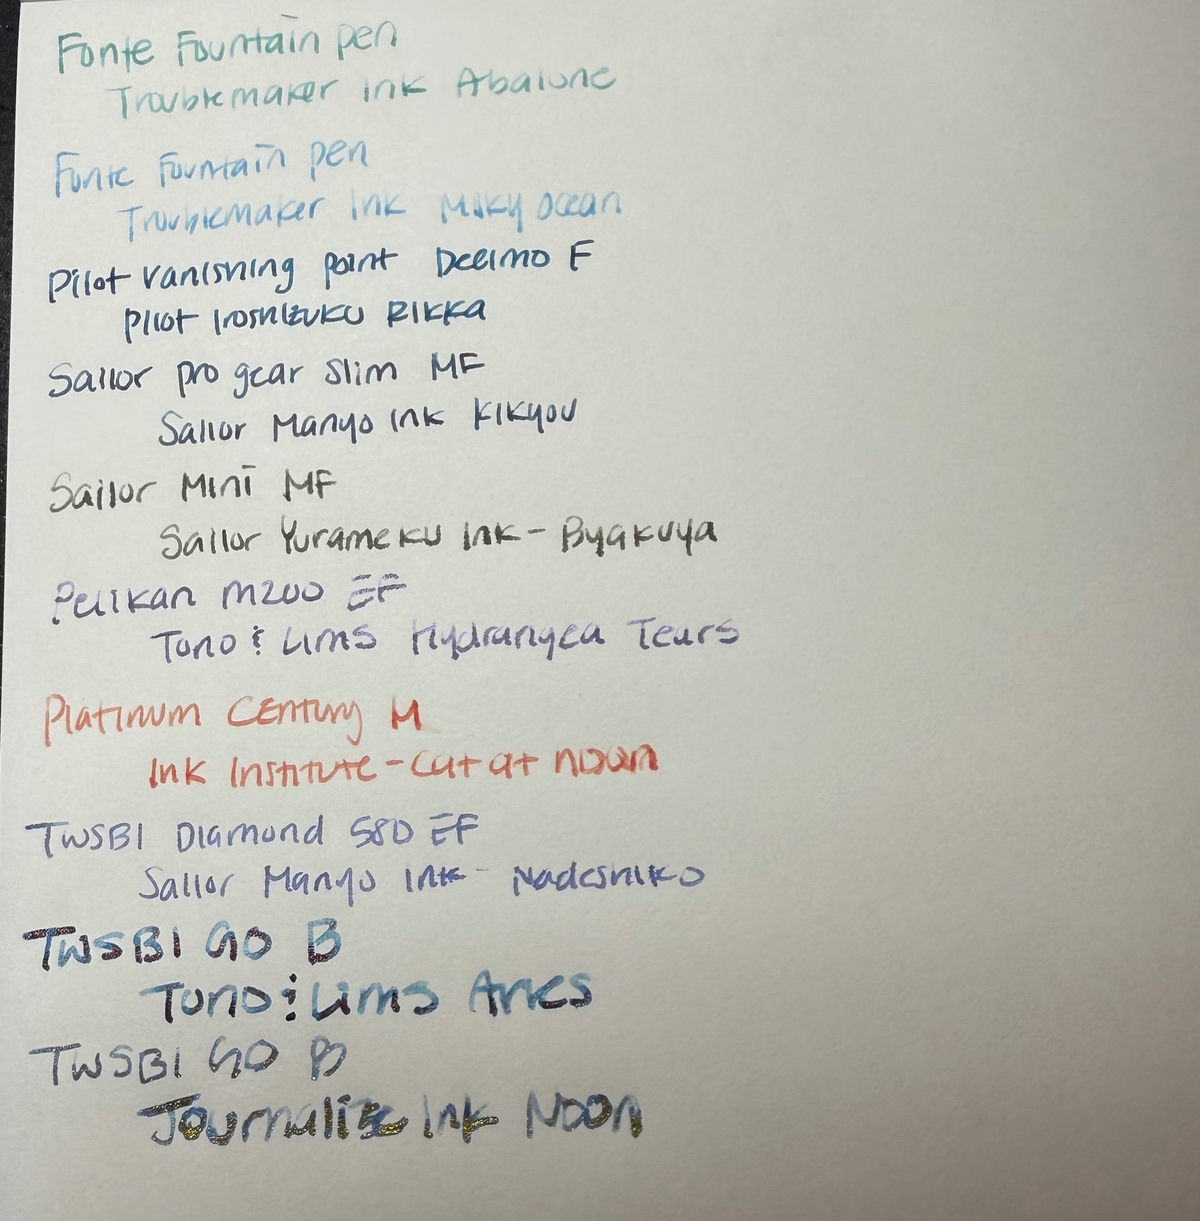 Fonte Fountain pen
Troublemaker Ink Abalone
Fonte Fountain pen
Troublemaker Ink Milky Ocean
Pilot Vanishing point Decimo F
Pilot Iroshizuku Rikka
Sailor pro gear slim MF
Sailor Manyo Ink Kikyou
Sailor Mini MF
Sailor Yurameku Ink - Byakuya
Pelikan M200 EF
Tono & Lims Hydrangea Tears
Platinum Century M
Ink Institute - Cat at noon
TWSBI Diamond 580 EF
Sailor Manyo Ink - Nadeshiko
TWSBI GO B
Tono & Lims Aries
TWSBI GO B
Journalize Ink Noon